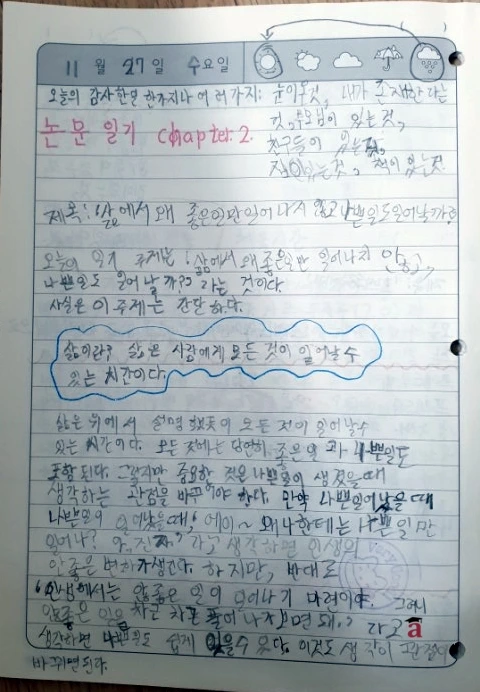 11 월 27 일 수요일
오늘의 감사한일 한가지나 여러가지: 눈이온것, 내가 존재한다는
것, 부모님이 있는 것,
논문 일기 chapter. 2.
친구들이 있는것,
집이있는것, 책이 있는것
제목: '삶에서 왜 좋은일만일어나지 않고 나쁜일도일어날까?'
오늘의 일기 주제는 '삶에서 왜좋은일만 일어나지 안고,
나쁜일도 일어날까?' 라는 것이다.
사실은 이 주제는 간단 하다.
삶이란? 삶은 사람에게 모든 것이 일어날수
있는 시간이다.
삶은 위에서 설명했듯이 모든 것이 일어날수
있는 시간이다. 모든 것에는 당연히 좋은일 과 나쁜일도
포함 된다. 그렇지만 중요한 것은 나쁜일이 생겼을때
생각하는 관점을 바꾸어야 한다. 만약 나쁜일이일어났을때
나쁜일이 일어났을때, '에이~ 왜나한테는 나쁜일만
일어나? 아, 진짜' 라고 생각하면 인생의
안좋은 변화가생긴다. 하지만, 반대로
'인생에서는 않좋은 일이 일어나기 마련이야. 그러니
않좋은 일을 차근 차근 풀어 나가면 돼.' 라고 a
생각하면 나쁜일도 쉽게 있을수 있다. 이것도 생각의 관점이
바뀌면된다.